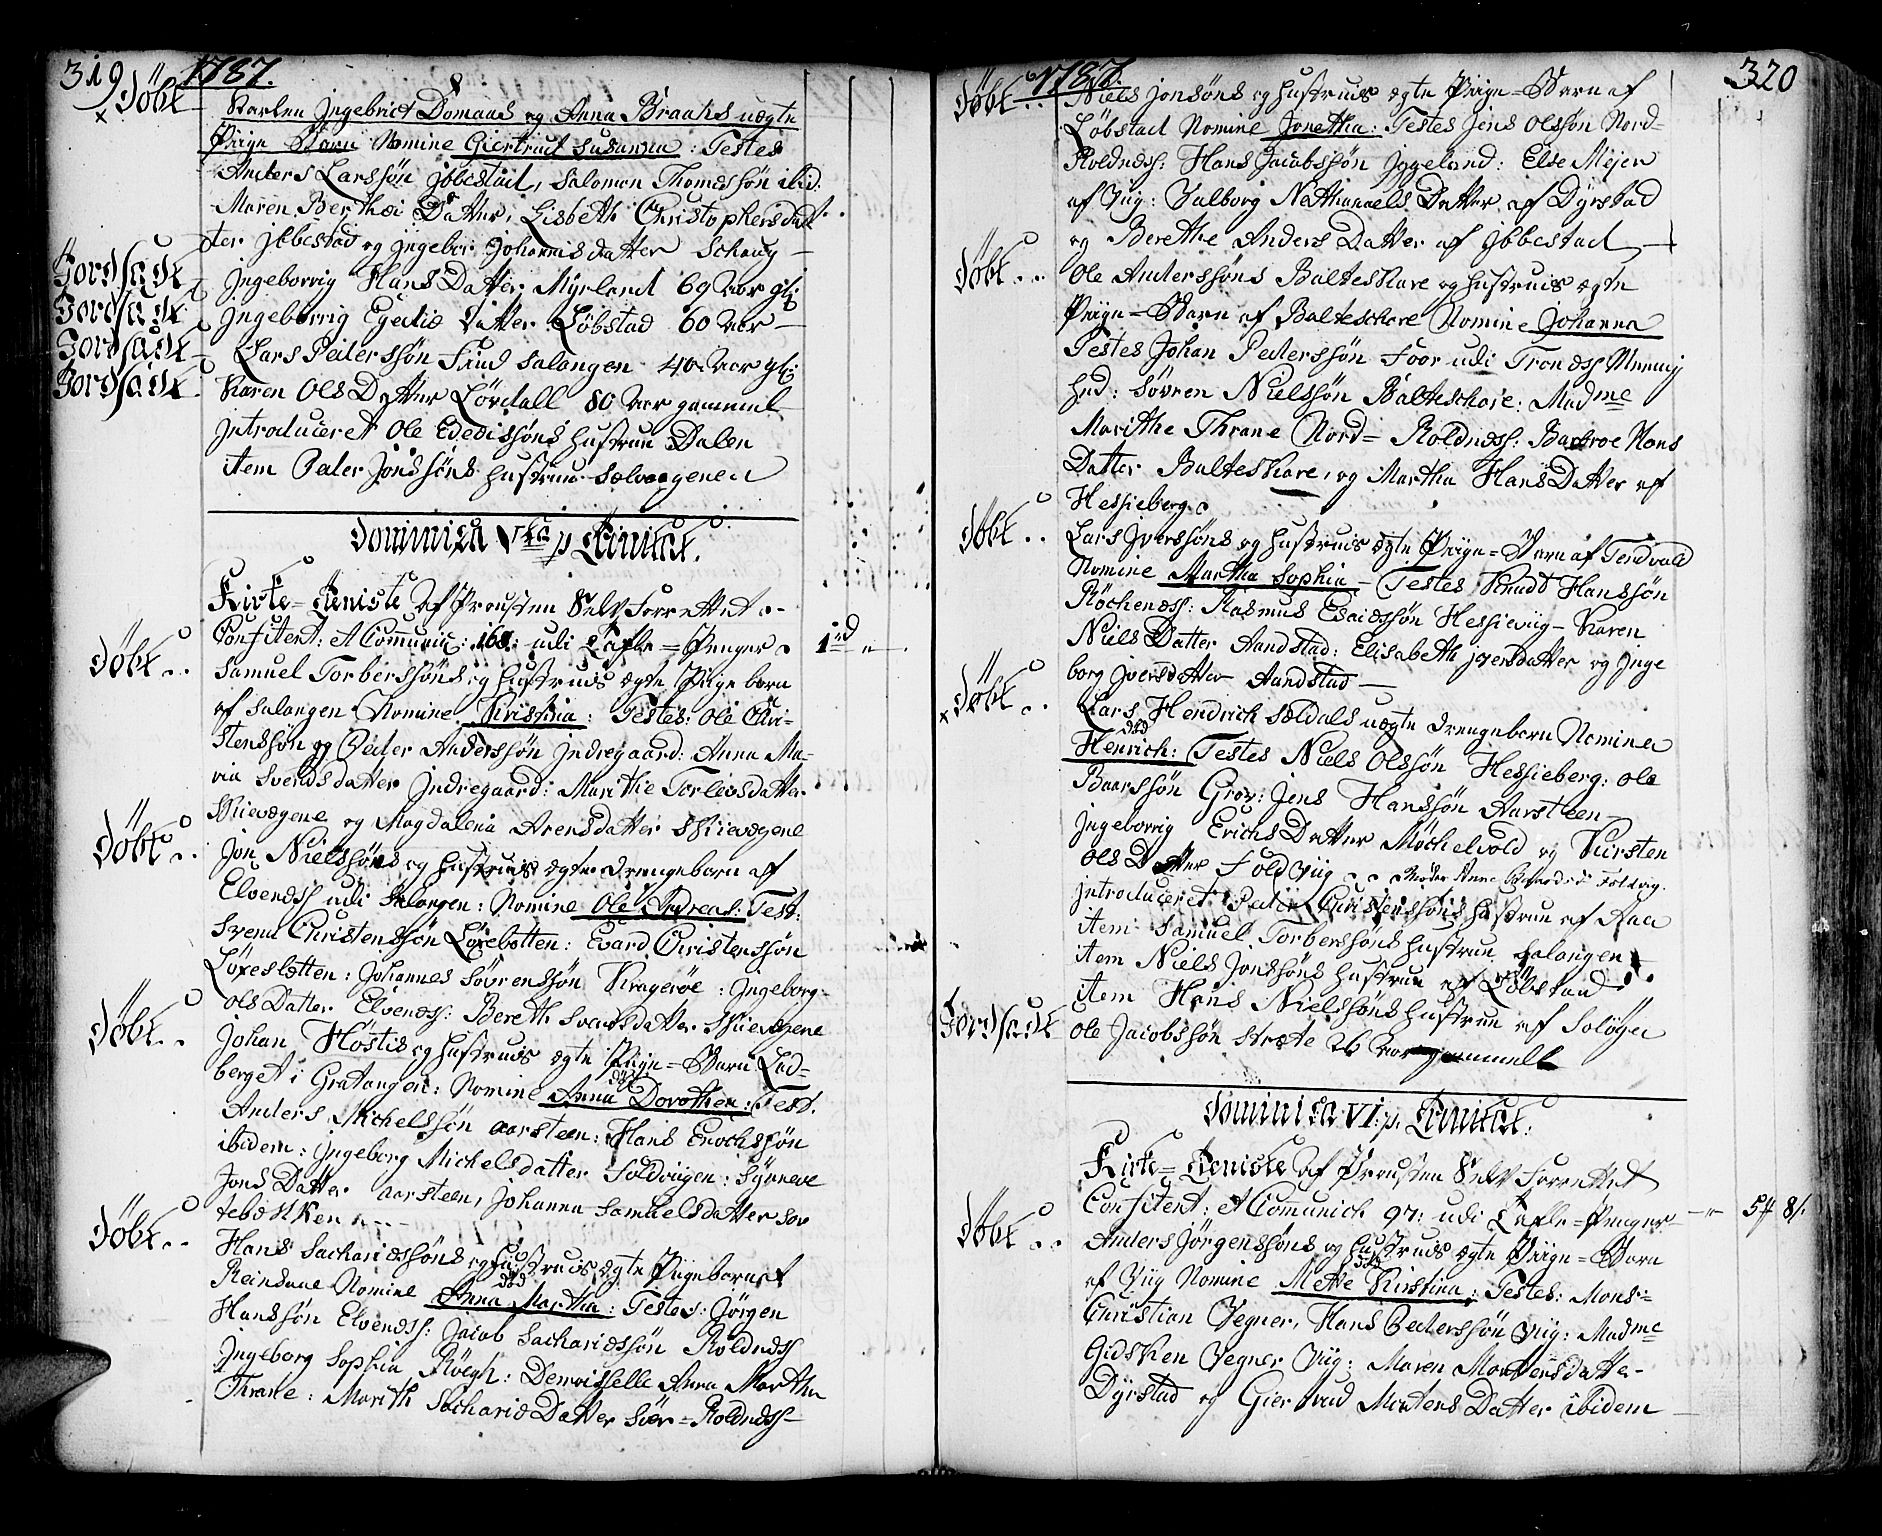 319
1787.
Døbt
Karlen Ingebrict Domaas og Anna Braaths uægte
Piige Barn Nomine Giertrud Susanna: Testes
Anders Larssøn Ibbestad, Salomon Thomæssøn ibid:
Maren Berthæi Datter, Lisbeth Christophersdat
ter Ibbestad og Ingebor Johannisdatter
Jordfæstet
Ingeborrig Hans Datter Myrland 69 Aar gl:
Jordfæstet
Ingeborrig Datter Løbstad 60 Aar
Jordfæstet
Lars Pedersøn Salangen 40 Aar gl:
Jordfæstet
Karen Ols Datter Lørdall 80 Aar gammel
Introduceret Ole Hustrue Dalen
item Peder Jonssøns Hustrue Sælvaagene
Dominica Vta p Trinitat.
Kirke-Teniste Af Prousten Selv Forrettet
Confitent: et Comunic: 168: udi Tafle=Penger 1rd
Døbt
Samuel Torberssøns og Hustrues ægte Piige barn
af Salangen Nomine Kristina: Testes: Ole Chri-
stenssøn og Peder Anderssøn Indregaard: Anna Ma-
ria Svendsdatter Indregaard: Marithe Torlevsdatter
og Magdalena Arensdatter
Døbt
Jon Nielssøns og Hustrues ægte Drengebarn af
Elvenæss udi Salangen: Nomine Ole Andreas: Test:
Svend Christenssøn Løxebotten: Evard Christenssøn
Løxesletten: Johannes Søvrenssøn Kragerøe: Ingeborg
Ols Datter Elvenæss: Bereth Svendsdatter
Døbt
Johan Høstis og Hustrues ægte Piige=Barn Lad-
berget i Gratangen: Nomine Anna Dorothea: Test.
død
Anders Michelssøn Aarsteen: Hans Enochssøn
ibidem: Ingeborg Michelsdatter Foldvigen: Synneve
Jons Datter Aarsteen, Johanna Samuelsdatter Sør
Døbt
Hans Sachariæssøns og Hustrues ægte Piigebarn af
Nomine Anna Martha: Testes: Jørgen
død
Hanssøn Elvenæss: Jacob Sachariæssøn Roldnæss
Ingeborg Sophia Røegh: Demoiselle Anna Martha
Thrane: Marith Sachariæ Datter Sør=Roldnæss
1787
320
Døbt
Niels Jonssøns og Hustrues ægte Piige=Barn af
Løbstad Nomine Jonetha: Testes Jens Olssøn Nord-
Roldnæss: Hans Jacobssøn Iggeland: Else Mejer
af Viig: Valborg Nathanaels Datter af Dyrstad
og Berethe Anders Datter af Ibbestad
Døbt
Ole Anderssøns Balteskare og Hustrues ægte
Piige=Barn af Balteschare Nomine Johanna
Testes Johan Pederssøn Foor udi Trondss Menig
hed: Søvren Nielssøn Balteschare: Madme
Marithe Thrane Nord=Roldnæss: Barbroe Hans
Datter Balteskare, og Martha Hans Datter af
Hessieberg
Døbt
Lars Iverssøns og Hustrues ægte Piige=Barn af
Nomine Martha Sophia Testes Knudt Hanssøn
Røchenæss: Rasmus Esaiæssøn Hessieviig Karen
Niels Datter Aandstad: Elisabeth Iversdatter og Inge
borg Iversdatter Aandstad
Døbt
Lars Hendrich Sældals uægte Drengebarn Nomine
død
Henrich: Testes Niels Olssøn Hessieberg: Ole
Baarssøn Grov: Jens Hanssøn Aarsteen
Ingeborrig Erichs Datter Møchelvold og Kirsten
Ols Datter Foldviig Moder Anne Foldvig.
Introduceret Peder Christenssøns Hustrue af Aaa
item Samuel Torberssøns Hustrue Salangen
item Niels Jonssøns Hustrue af Løbstad
item Hans Nielssøns Hustrue af Soløyen
Jordfæstet
Ole Jacobssøn Stræte 26 Aar gammell
Dominica VI: p. Trinitat:
Kirke=Teniste Af Prousten Selv Forrettet
Confitent: et Comunich 97: udi Tafle=Penger
Døbt
Anders Jørgenssøns og Hustrues ægte Piige=Barn
død
af Viig Nomine Mette Kirstina: Testes: Mons:
Christian Vegner, Hans Pederssøn Viig: Madme
Gidsken Vegner Viig: Maren Mortensdatter
Dyrstad og Giertrud Mortens Datter ibidem